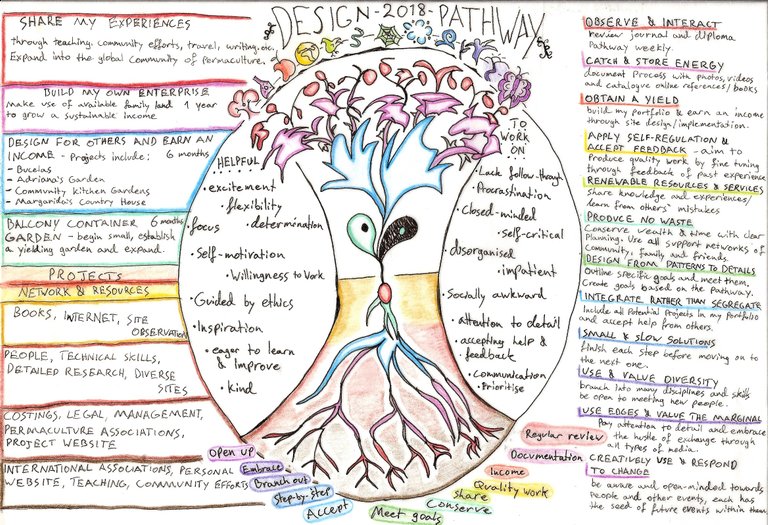 DESIGN-2018-PATHWAY
SHARE MY EXPERIENCES
through teaching, community efforts, travel, writing, etc.
Expand into the global Community of Permaculture.
BUILD MY OWN ENTERPRISE
Make use of available family land 1 year
to grow a sustainable income
DESIGN FOR OTHERS AND EARN AN
INCOME - Projects include: 6 months
- Bucelas
- Adriana's Garden
- Community Kitchen Gardens
- Margarida's Country House
BALCONY CONTAINER 6 months
GARDEN - begin small, establish
a yielding garden and expand.
PROJECTS
NETWORK & RESOURCES
BOOKS, INTERNET, SITE
OBSERVATION
PEOPLE, TECHNICAL SKILLS,
DETAILED RESEARCH, DIVERSE
SITES
COSTINGS, LEGAL, MANAGEMENT,
PERMACULTURE ASSOCIATIONS,
PROJECT WEBSITE
INTERNATIONAL ASSOCIATIONS, PERSONAL
WEBSITE, TEACHING, COMMUNITY EFFORTS
HELPFUL
• excitement
flexibility
• focus
• determination
• self-motivation
• Willingness to Work
• Guided by ethics
• Inspiration
• eager to learn
& improve
• kind
TO
WORK
ON
• Lack follow-through
• Procrastination
• Closed-minded
• self-critical
• disorganised
• impatient
• Socially awkward
• attention to detail
• accepting help &
feedback
• communication
• Prioritise
Open up
Embrace
Branch out
Step-by-step
Accept
Meet goals
Conserve
share
Quality work
Income
Documentation
Regular review
OBSERVE & INTERACT
review journal and diploma
Pathway weekly.
CATCH & STORE ENERGY
document Process with photos, videos
and catalogue online references/books
OBTAIN A YIELD
build my portfolio & earn an income
through site design/implementation.
APPLY SELF-REGULATION &
ACCEPT FEEDBACK - aim to
Produce quality work by fine tuning
through feedback of past experience
RENEWABLE RESOURCES & SERVICES
Share knowledge and experiences/
learn from others' mistakes
PRODUCE NO WASTE
Conserve wealth & time with clear
Planning. Use all support networks of
Community, family and friends.
DESIGN FROM PATTERNS TO DETAILS
Outline specific goals and meet them.
Create goals based on the Pathway.
INTEGRATE RATHER THAN SEGREGATE
Include all Potential Projects in my Portfolio
and accept help from others.
SMALL & SLOW SOLUTIONS
finish each step before moving on to
the next one.
USE & VALUE DIVERSITY
branch into many disciplines and skills
be open to meeting new people.
USE EDGES & VALUE THE MARGINAL
Pay attention to detail and embrace
the hustle of exchange through
all types of media.
CREATIVELY USE & RESPOND
TO CHANGE
be aware and open-minded towards
People and other events, each has
the seed of future events within them